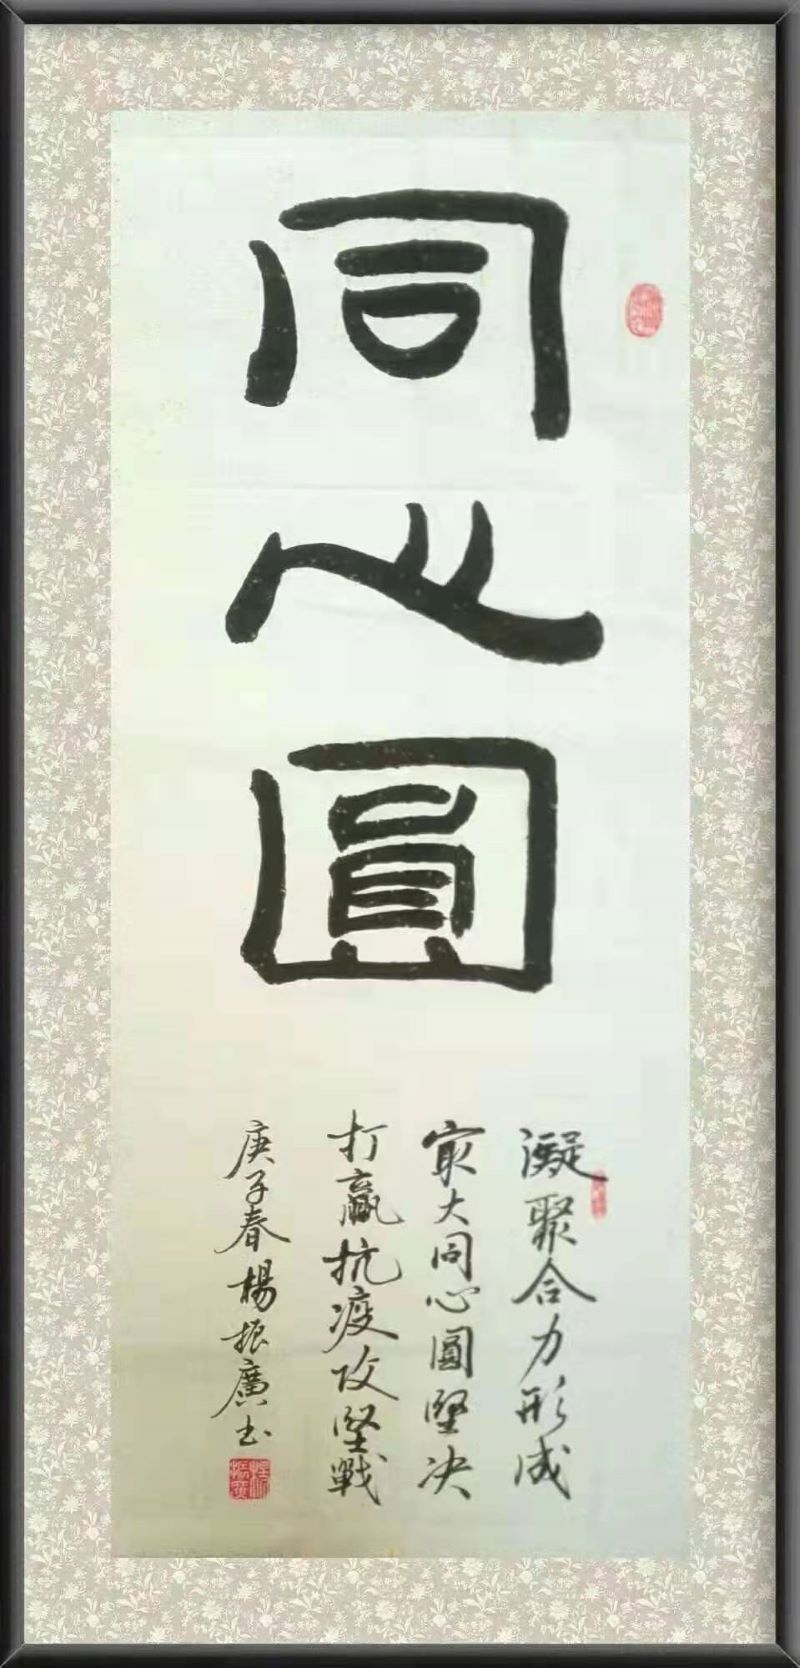 同心圓
凝聚合力形成
最大同心圓堅决
打贏抗疫攻堅戰
庚子春楊振廣书